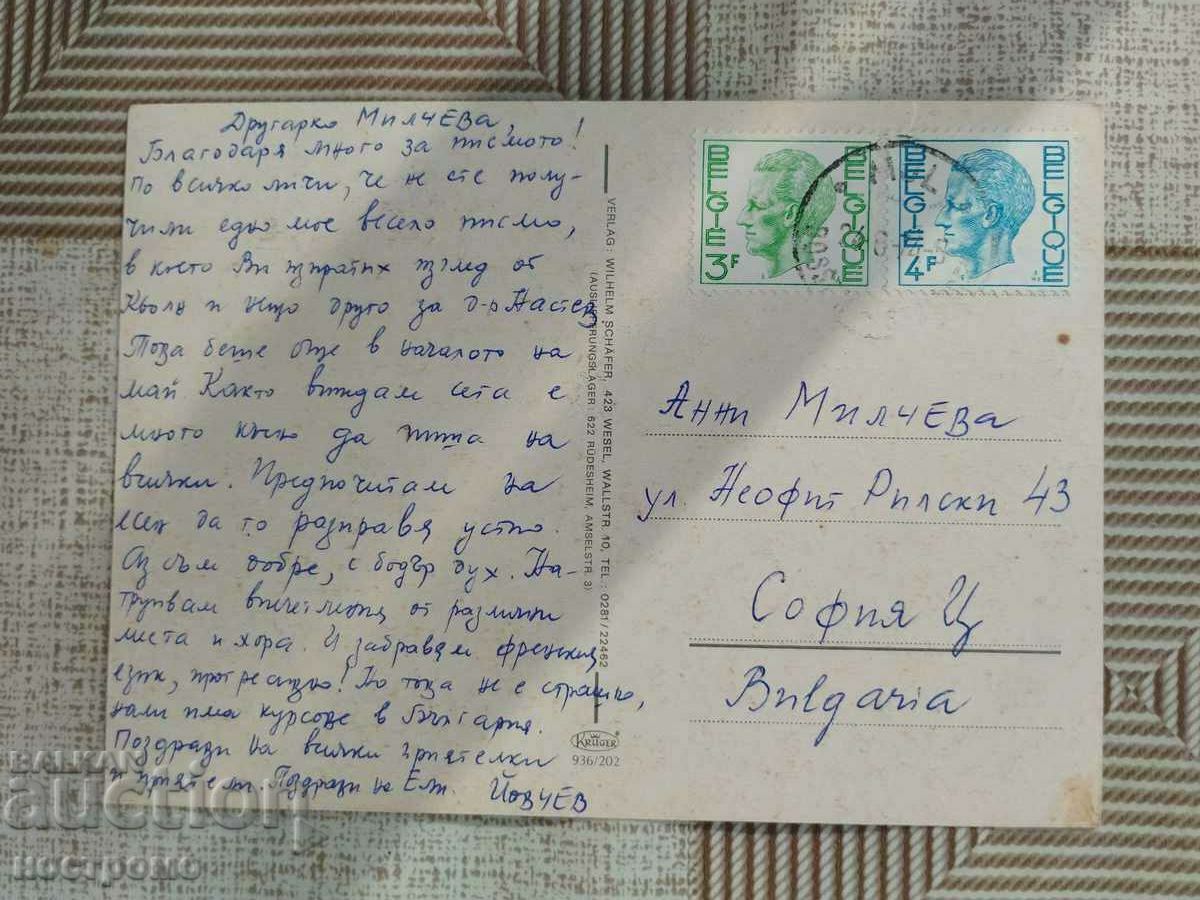 Другарко Милчева,
Благодаря много за писмото!
По всичко личи, че не сте полу-
чили едно мое весело писмо,
в което Ви изпратих изглед от
Кьолн и нещо друго за д-р Настев,
Това беше още в началото на
май. Както виждам сега е
много късно да пиша на
всички. Предпочитам на
есен да го разправя устно.
Аз съм добре, с бодър дух. На-
трупвам впечатления от различни
места и хора. И забравям френския
език, прогресивно! Но това не е страшно,
нали има курсове в България.
Поздрави на всички приятелки
и приятели. Поздрави на
Йовчев
VERLAG: WILHELM SCHÄFER, 423 WESEL, WALLSTR. 10, TEL.: 0281/22462
(AUSLIEFERUNGSLAGER: 622 RÜDESHEIM, AMSELSTR. 3)
KRÜGER
936/202
BELGIE BELGIQUE
3F
BELGIE BELGIQUE
4F
Анни Милчева
ул. Неофит Рилски 43
София Ц
Bulgaria
BALKAN
auction
ностромо